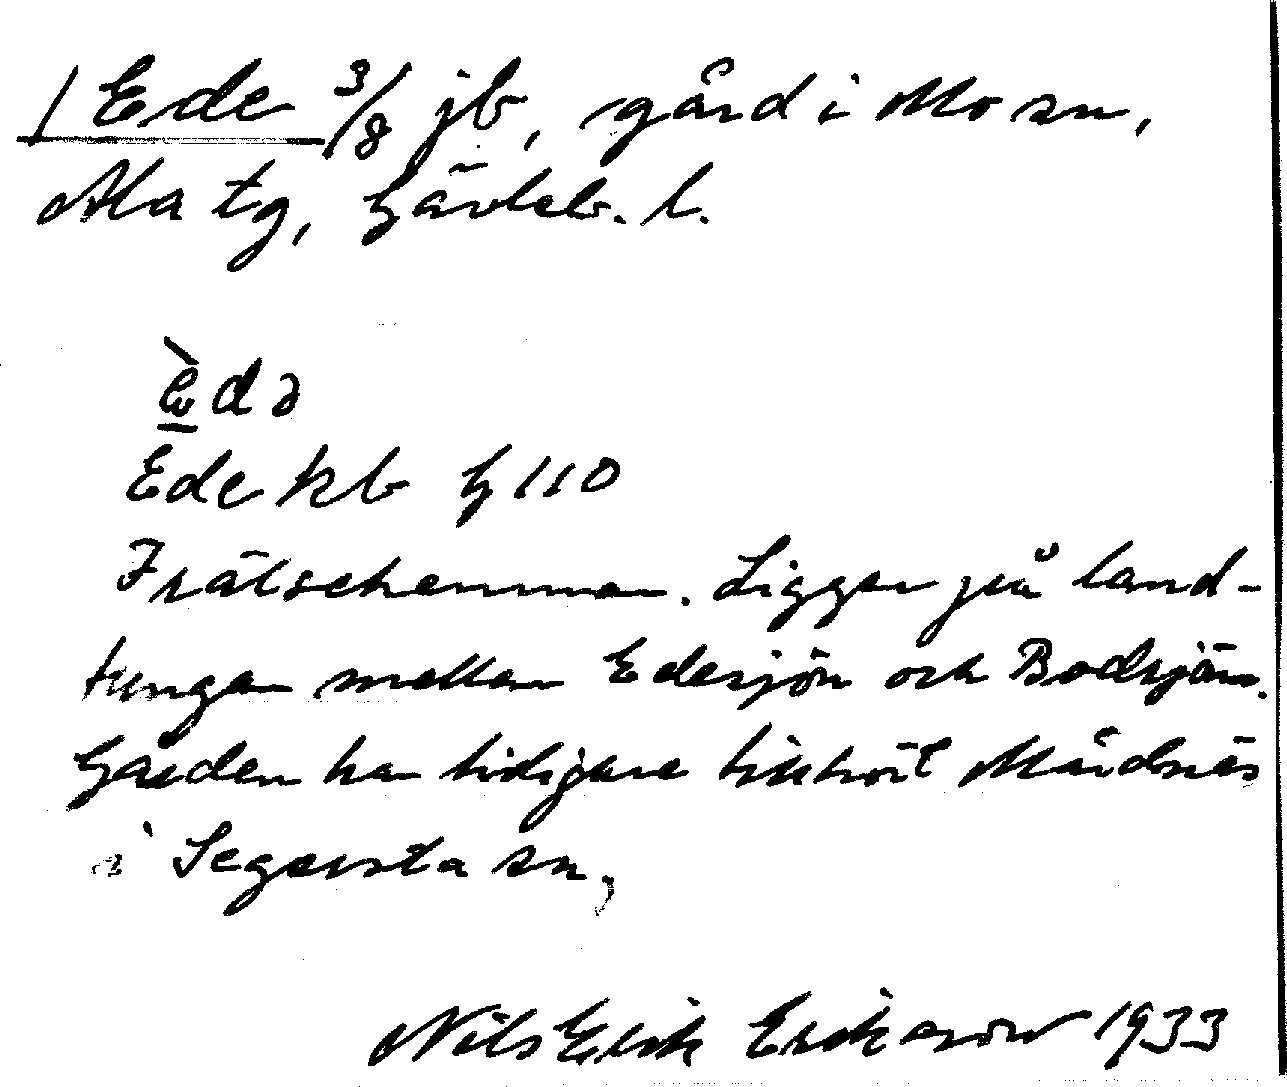 1 Ede 3/8 jb, gård i Mo sn,
Ala tg, Gävleb. l.
èdə
Ede kb G 110
Frälsehemman. Ligger på land-
tungan mellan Edesjön och Bodsjön.
Gården har tidigare tillhört Mårdnäs
i Segersta sn,
Nils Erik Eriksson 1933